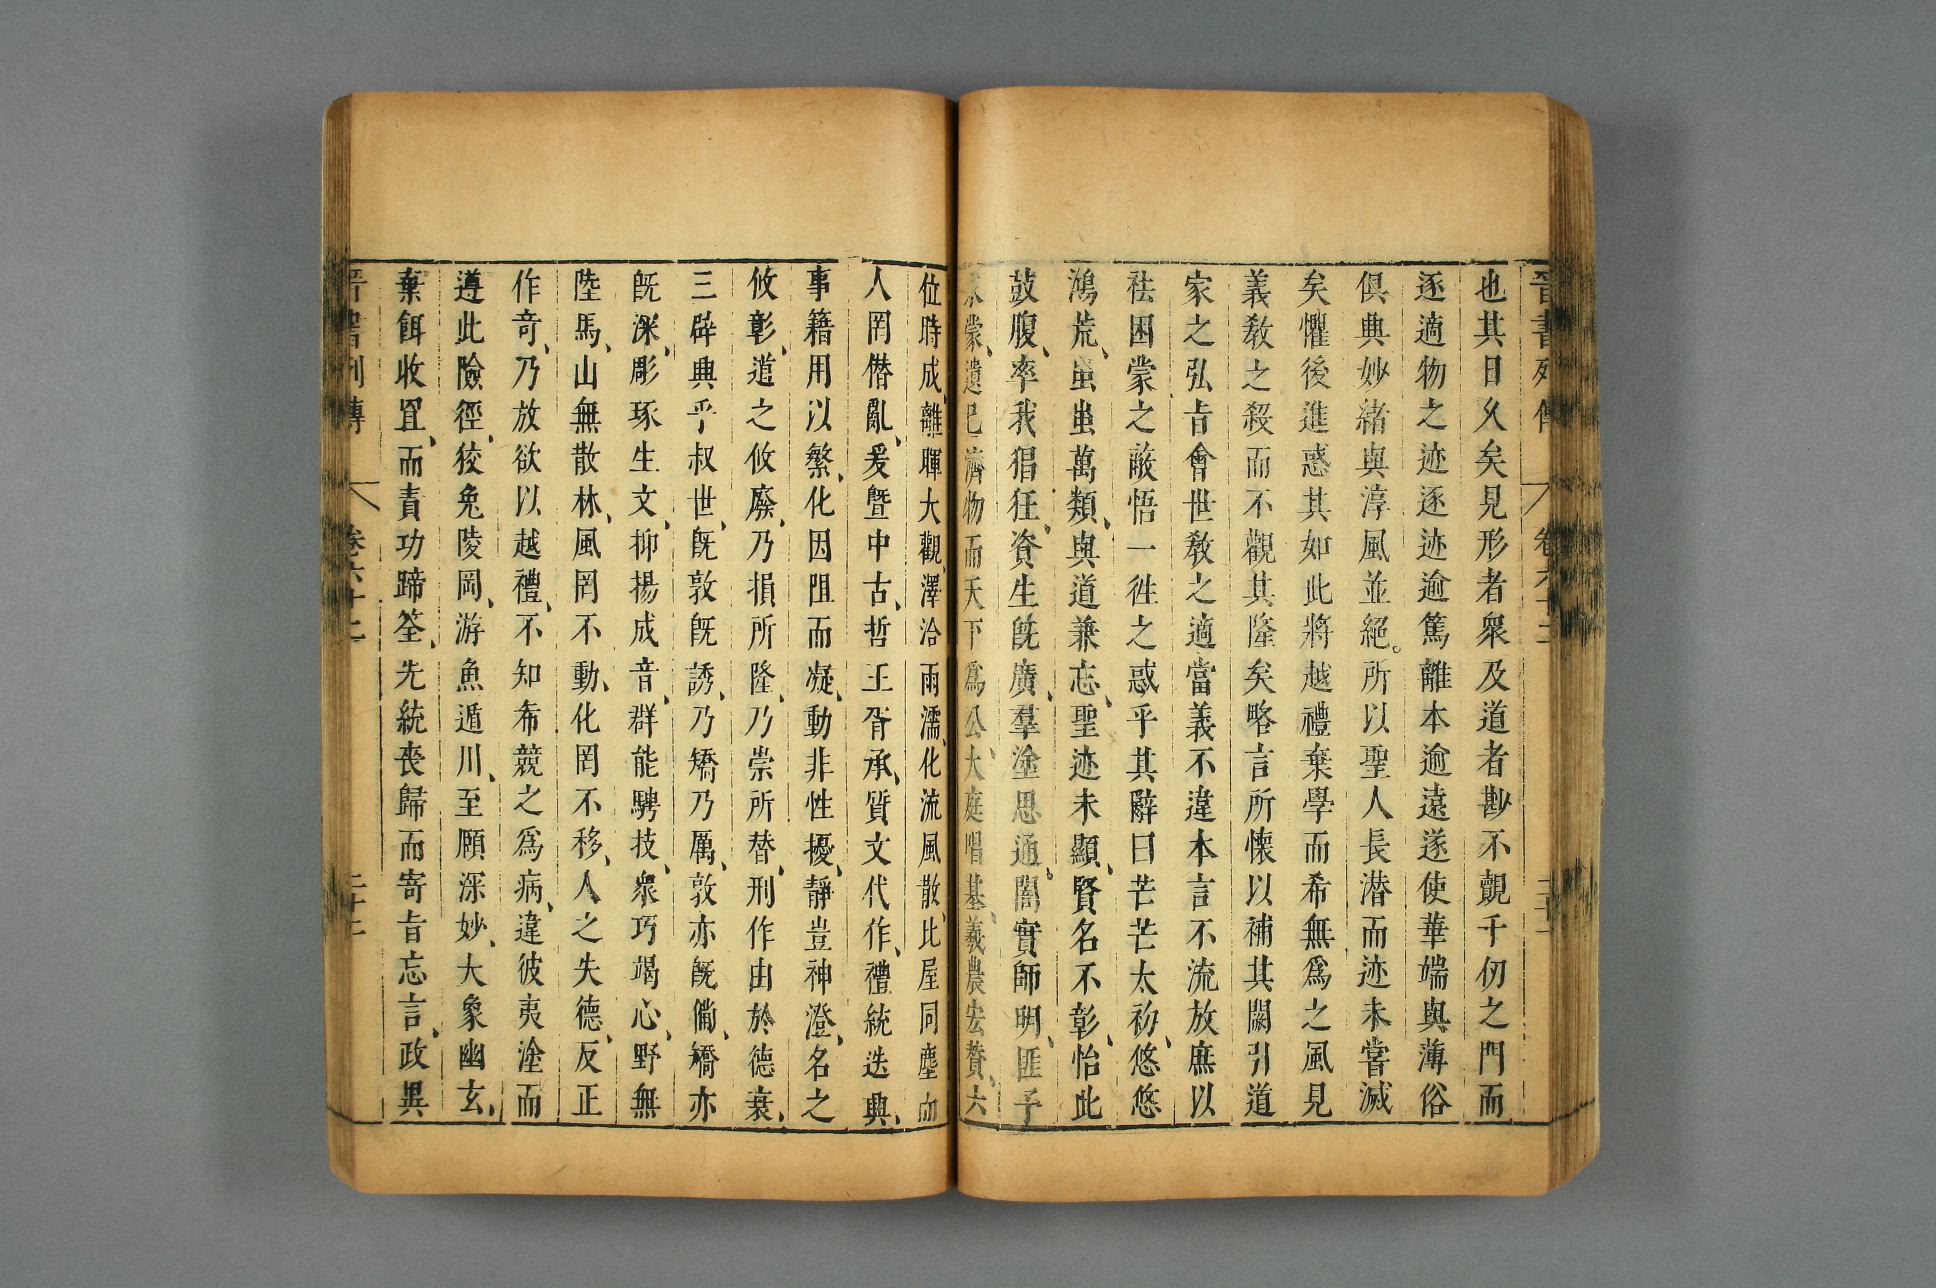 晉書列傳 卷六十二 二十二
也其日久矣見形者衆及道者尠不覿千仞之門而
逐適物之迹逐迹逾篤離本逾遠遂使華端與薄俗
俱興妙緒與淳風並絕。所以聖人長潛而迹未嘗滅
矣懼後進惑其如此將越禮棄學而希無爲之風見
義教之殺而不觀其隆矣略言所懷以補其闕引道
家之弘旨會世教之適當義不違本言不流放庶以
祛困蒙之蔽悟一徃之惑乎其辭曰芒芒太初、悠悠
鴻荒、蚩蚩萬類、與道兼忘、聖迹未顯、賢名不彰、怡此
鼓腹、率我猖狂、資生旣廣、羣塗思通。闇實師明、匪予
求蒙、遺己濟物而天下爲公、大庭唱基、羲農宏贊、六
位時成、離暉大觀、澤洽雨濡、化流風散、比屋同塵而
人罔僣亂、爰曁中古、哲王胥承、質文代作、禮統迭興、
事籍用以繁、化因阻而凝、動非性擾、靜豈神澄、名之
攸彰、道之攸廢、乃損所隆、乃崇所替、刑作由於德衰、
三辟興乎叔世、旣敦旣誘、乃矯乃厲、敦亦旣備、矯亦
旣深、彫琢生文、抑揚成音、群能騁技、衆巧竭心、野無
陸馬、山無散林、風罔不動、化罔不移、人之失德、反正
作奇、乃放欲以越禮、不知希競之爲病、違彼夷塗而
遵此險徑、狡兔陵岡、游魚遁川、至賾深妙、大象幽玄、
棄餌收罝、而責功蹄筌、先統喪歸而寄旨忘言、政異
晉書列傳 卷六十二 二十二